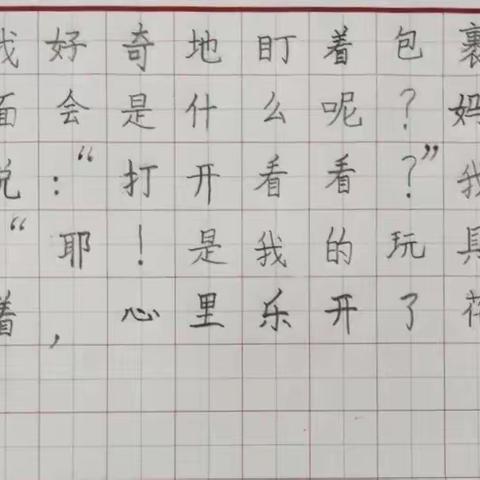 我好奇地盯着包裹
面会是什么呢？妈
说：“打开看看？”我
“耶！是我的玩具
着，心里乐开了花